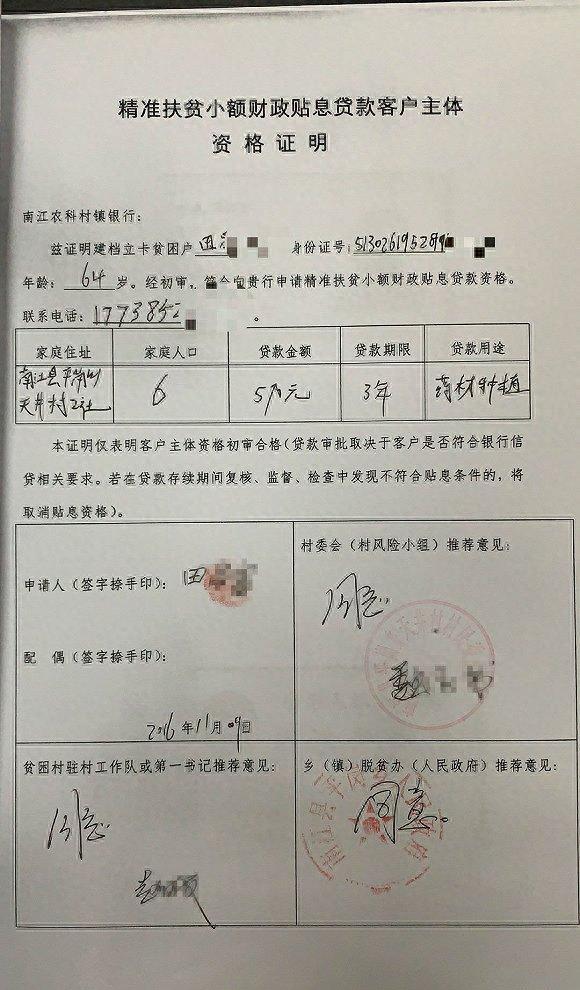 精准扶贫小额财政贴息贷款客户主体
资格证明
南江农科村镇银行：
兹证明建档立卡贫困户 田 身份证号：513026195289
年龄：64 岁。经初审，符合向贵行申请精准扶贫小额财政贴息贷款资格。
联系电话：1773852 。
家庭住址 家庭人口 贷款金额 贷款期限 贷款用途
南江县平岗乡天井村2社 6 5万元 3年 药材种植
本证明仅表明客户主体资格初审合格（贷款审批取决于客户是否符合银行信
贷相关要求。若在贷款存续期间复核、监督、检查中发现不符合贴息条件的，将
取消贴息资格）。
申请人（签字捺手印）： 田
配 偶（签字捺手印）：
2016年11月09日
村委会（村风险小组）推荐意见：
同意。
贫困村驻村工作队或第一书记推荐意见：
同意。
乡（镇）脱贫办（人民政府）推荐意见：
同意。